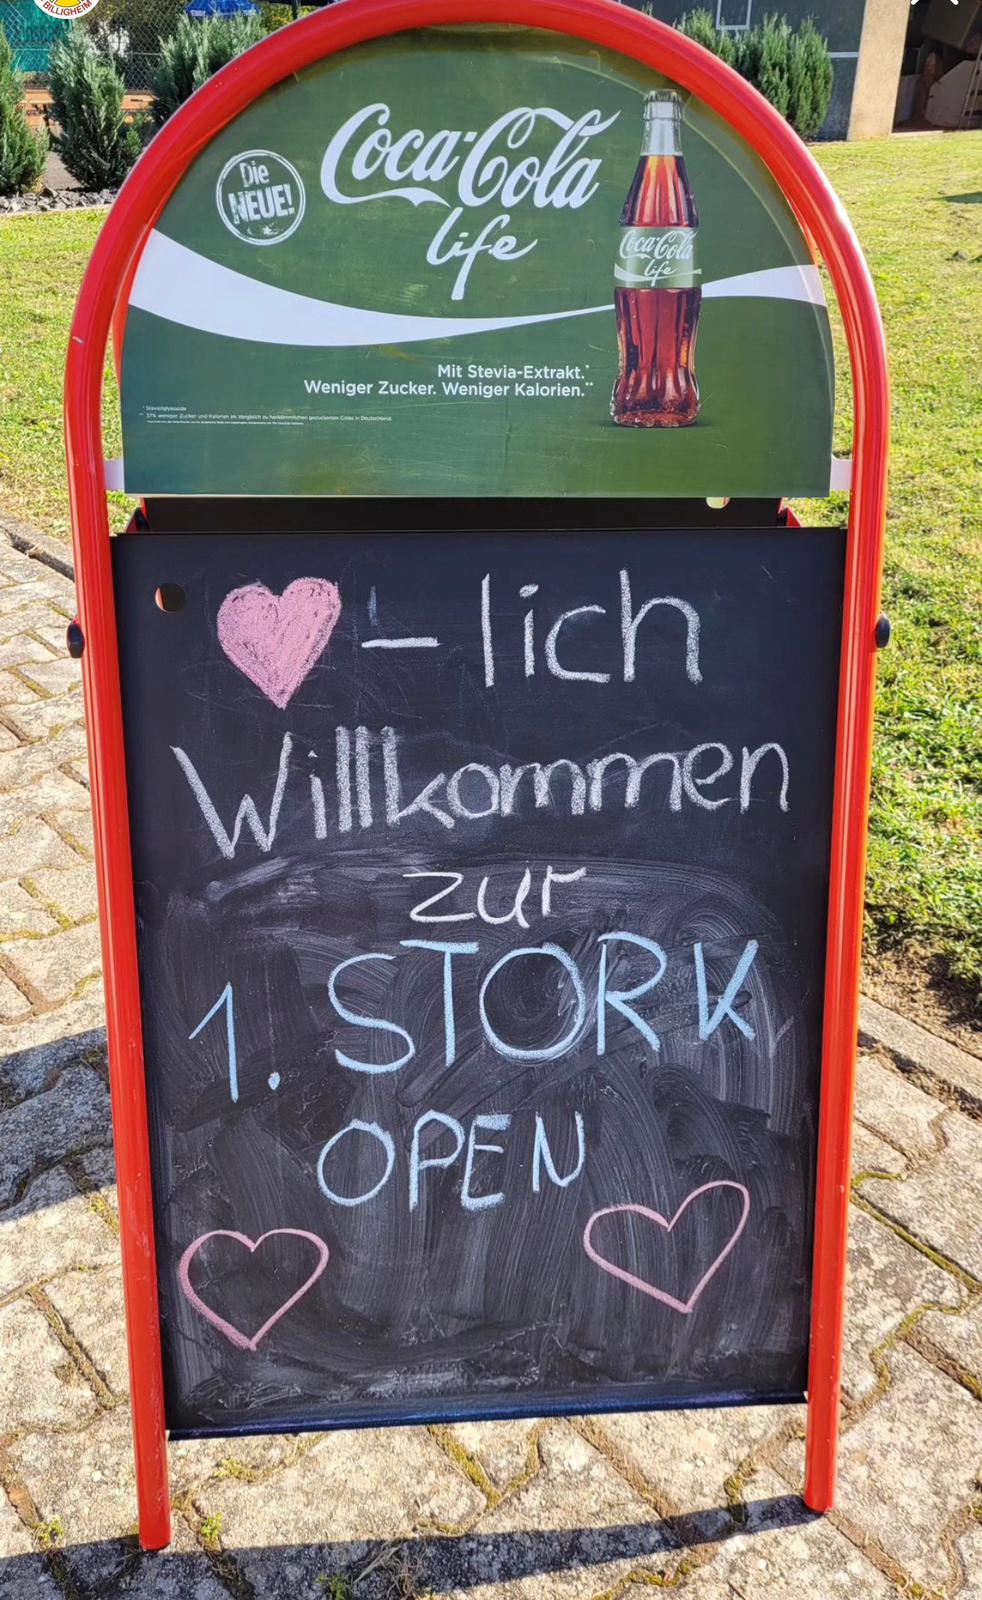 BILLIGHEIM
Die
NEUE!
Coca-Cola
life
Coca-Cola
life
Mit Stevia-Extrakt.*
Weniger Zucker. Weniger Kalorien.**
* Steviolglykoside
** 37% weniger Zucker und Kalorien im Vergleich zu herkömmlichen gezuckerten Colas in Deutschland.
-lich
Willkommen
zur
1. STORK
OPEN